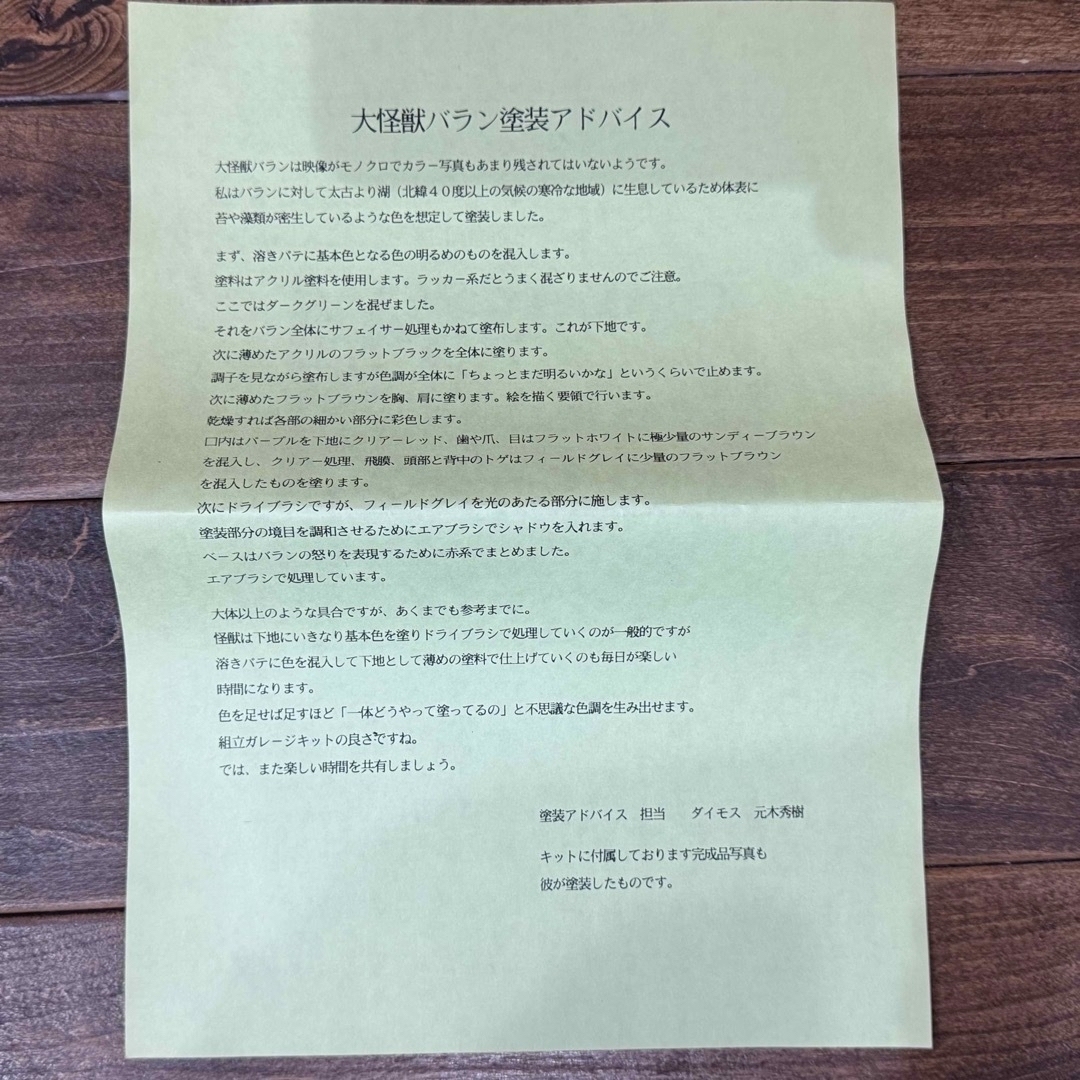 大怪獣バラン塗装アドバイス
大怪獣バランは映像がモノクロでカラー写真もあまり残されてはいないようです。
私はバランに対して太古より湖（北緯４０度以上の気候の寒冷な地域）に生息しているため体表に
苔や藻類が密生しているような色を想定して塗装しました。
まず、溶きパテに基本色となる色の明るめのものを混入します。
塗料はアクリル塗料を使用します。ラッカー系だとうまく混ざりませんのでご注意。
ここではダークグリーンを混ぜました。
それをバラン全体にサフェイサー処理もかねて塗布します。これが下地です。
次に薄めたアクリルのフラットブラックを全体に塗ります。
調子を見ながら塗布しますが色調が全体に「ちょっとまだ明るいかな」というくらいで止めます。
次に薄めたフラットブラウンを胸、肩に塗ります。絵を描く要領で行います。
乾燥すれば各部の細かい部分に彩色します。
口内はパープルを下地にクリアーレッド、歯や爪、目はフラットホワイトに極少量のサンディーブラウン
を混入し、クリアー処理、飛膜、頭部と背中のトゲはフィールドグレイに少量のフラットブラウン
を混入したものを塗ります。
次にドライブラシですが、フィールドグレイを光のあたる部分に施します。
塗装部分の境目を調和させるためにエアブラシでシャドウを入れます。
ベースはバランの怒りを表現するために赤系でまとめました。
エアブラシで処理しています。
大体以上のような具合ですが、あくまでも参考までに。
怪獣は下地にいきなり基本色を塗りドライブラシで処理していくのが一般的ですが
溶きパテに色を混入して下地として薄めの塗料で仕上げていくのも毎日が楽しい
時間になります。
色を足せば足すほど「一体どうやって塗ってるの」と不思議な色調を生み出せます。
組立ガレージキットの良さですね。
では、また楽しい時間を共有しましょう。
塗装アドバイス　担当　　ダイモス　元木秀樹
キットに付属しております完成品写真も
彼が塗装したものです。